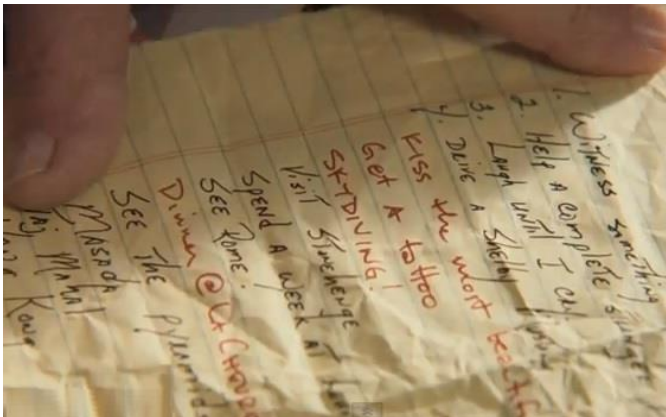 1. Witness something
2. Help a complete
3. Laugh until I cry.
4. Drive a Shelby
Kiss the most
Get A tattoo
SKYDIVING!
Visit Stonehenge
Spend a week at
See Rome.
Dinner @
See the pyramids
MASADA
Taj Mahal
Kong